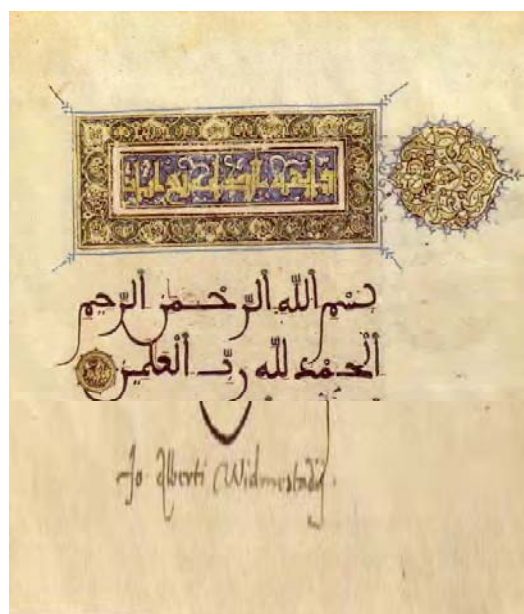 بِسْمِ اللَّهِ الرَّحْمَٰنِ الرَّحِيمِ
الْحَمْدُ لِلَّهِ رَبِّ الْعَٰلَمِينَ
Jo. Alberti Widmestadij.